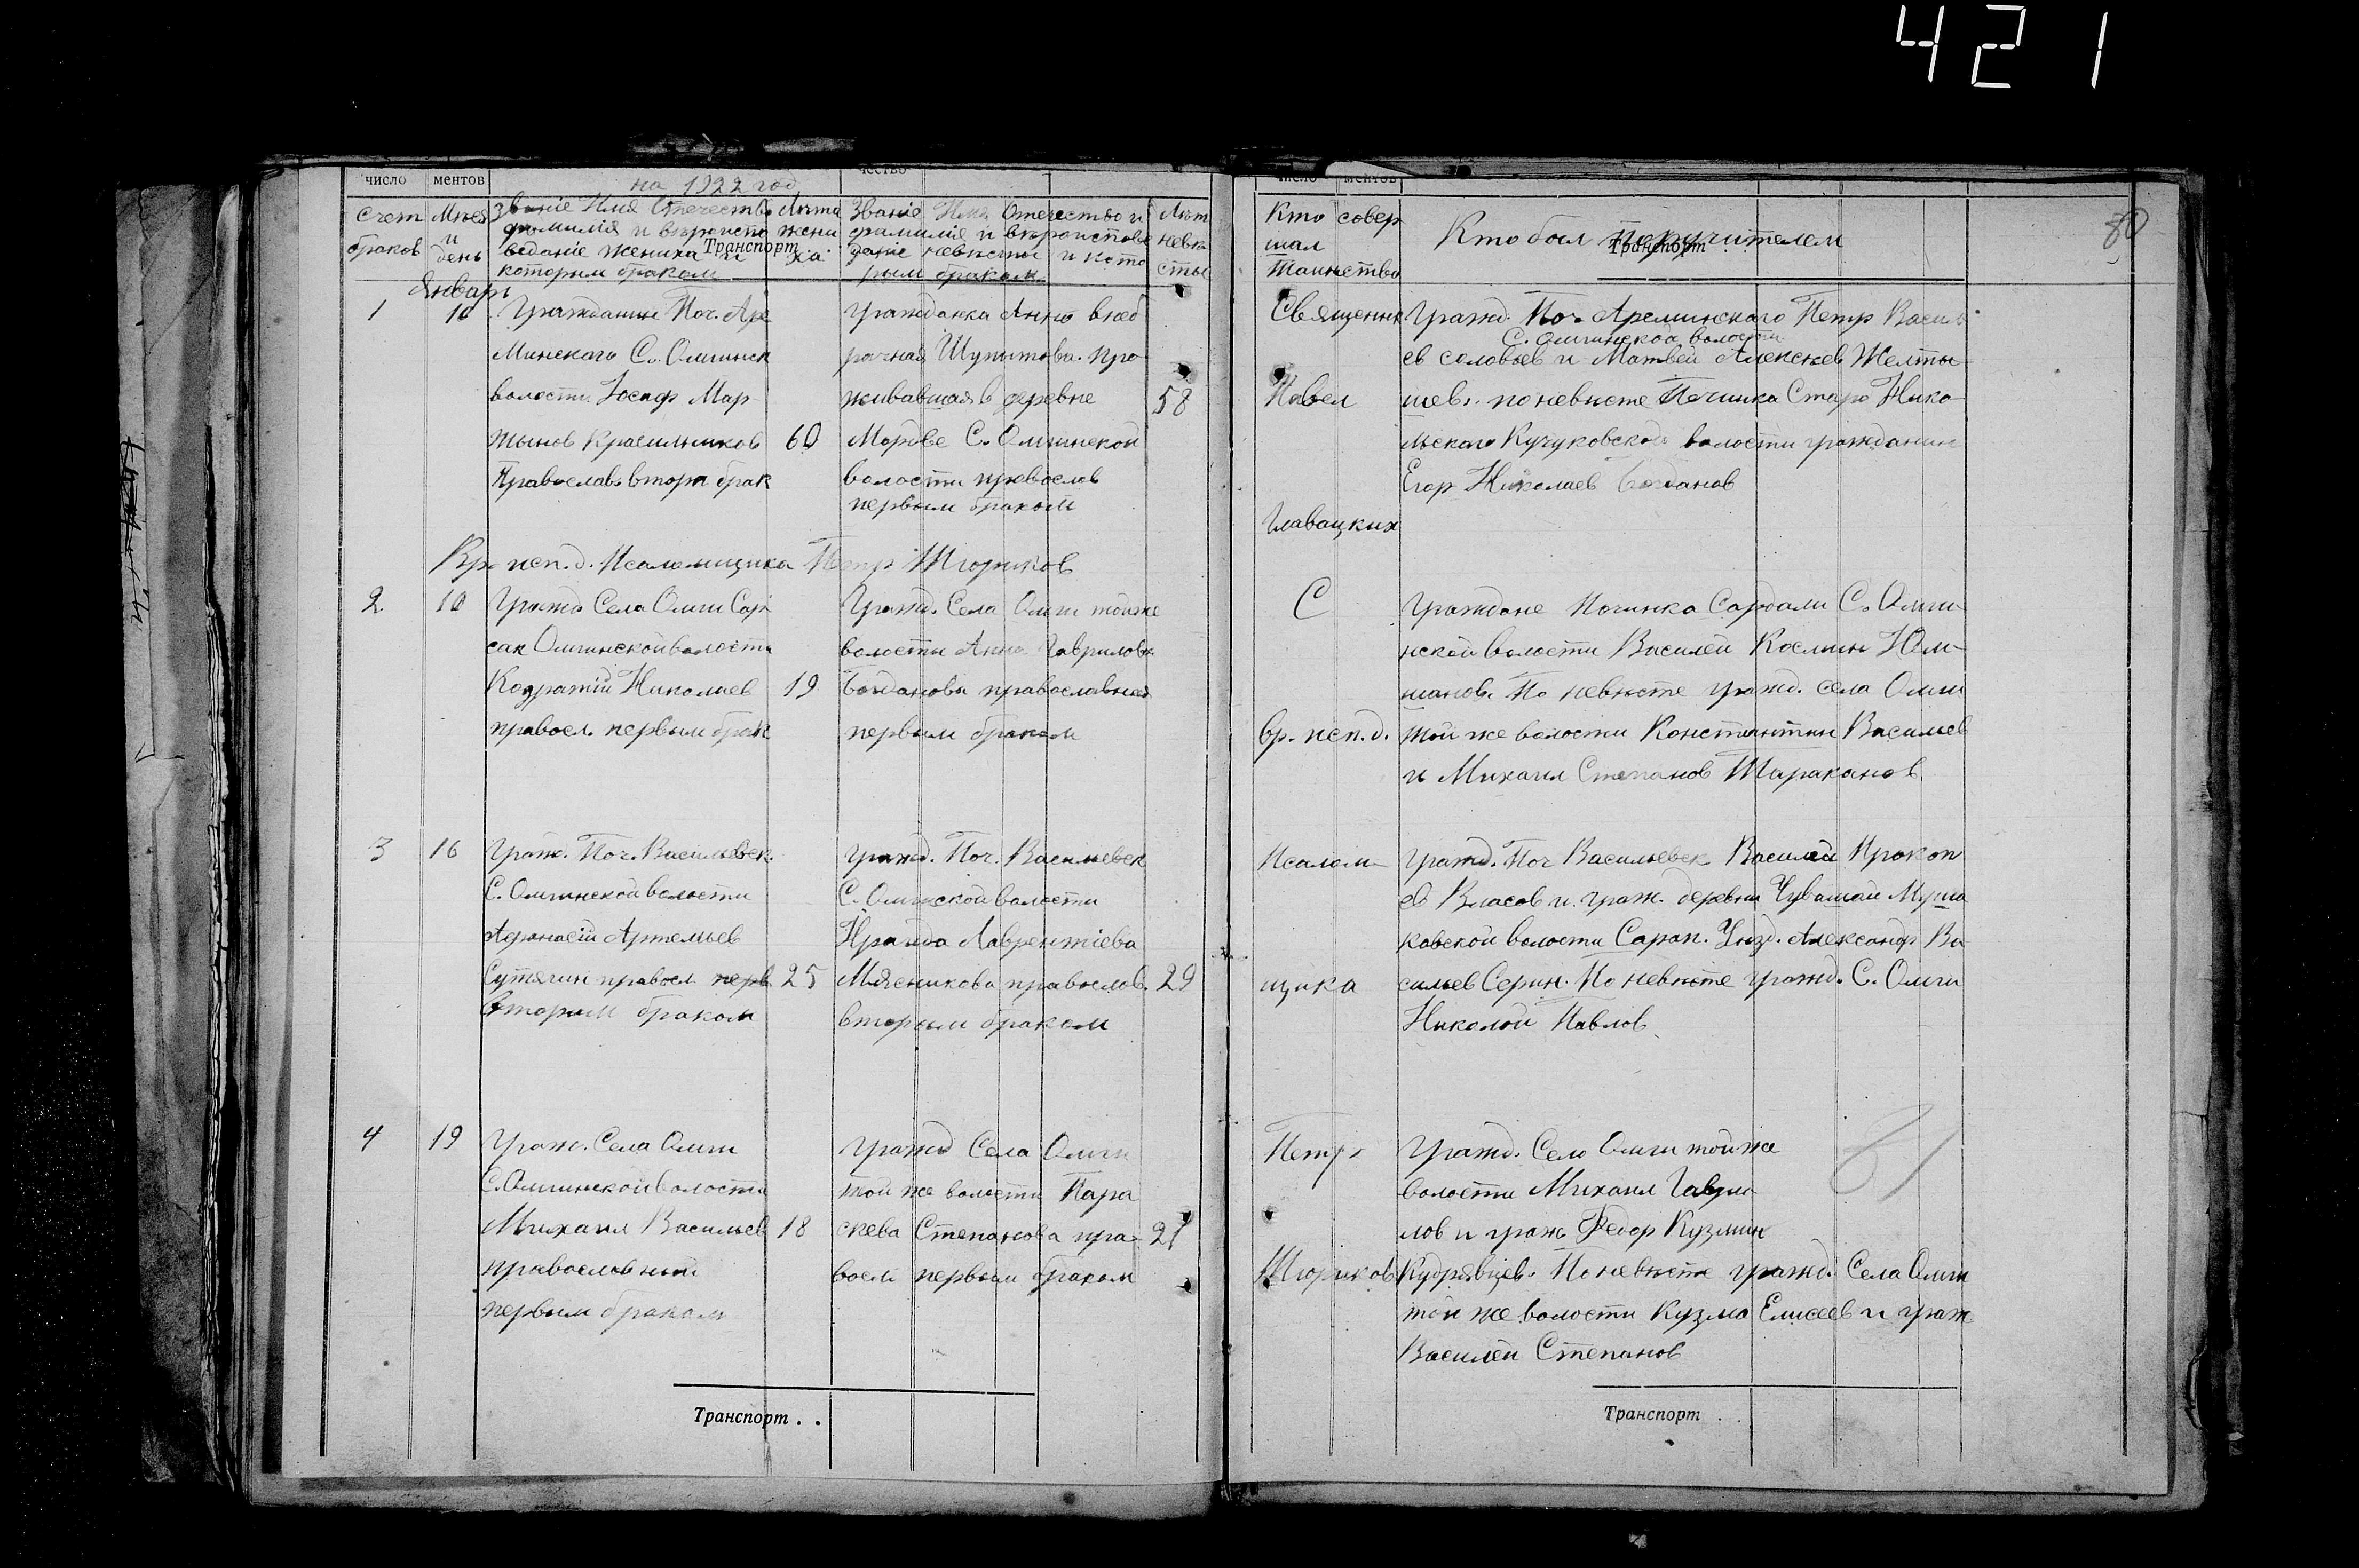 421
число ментов чество
на 1922 год
Счет браков
Мѣся и день
Званіе Имя Отечество
фамилія и вѣроиспо
ведание жениха и
которым браком
Лѣта жени ха
Званіе Имя Отечество и
фамилія и вѣроиспове
дание невѣсты и кото
рым браком
Лѣт невѣ сты
Транспорт . .
Январь
1 10
Гражданин Поч. Аре
минского С. Омгинск
волости Иосиф Мар
тынов Красильников 60
Православ. втор. брак
гражданка Анна внеб
рачная Шупитова. про
живавшая в деревне 58
Мордве С. Омгинской
волости православ
первым браком
Вр. исп. д. Псаломщика Петр Шториков
2. 10
Гражд. Села Омги Сар
сак Омгинской волости
Кодратій Николаев 19
правосл. первым брак
Гражд. Села Омги той же
волости Анна Гаврилова
Богданова православная
первым браком
3 16
Граж. Поч. Васильевск.
С. Омгинской волости
Афонасій Артемьев
Сутягин правосл. перв 25
вторым браком
гражд. Поч. Васильевск
С. Омгинской волости
Ираида Лаврентіева
Мясникова православ. 29
вторым браком
4 19
Граж. Села Омги
С. Омгинской волости
Михаил Васильев 18
православный
первым браком
гражд Села Омги
той же волости Пара
скева Степанова пра- 21
восл первым браком
Транспорт . .
число ментов
Кто совер
шал
таинство
Кто был поручителем
Транспорт . .
80
Священник
Павел
Главацких
Гражд. Поч. Ареминского Петр Василь
С. Омгинской волости
ев Соловьев и Матвей Алексеев Желты
шев. по невѣсте Починка Старо Нико
льского Кучуковской волости гражданин
Егор Николаев Богданов
С
вр. исп. д.
Граждане Починка Сардали С. Омги-
нской волости Василей Космин Юль-
шанов. По невѣсте гражд. села Омги
той же волости Константин Васильев
и Михаил Степанов Тараканов
Псалом-
щика
гражд. Поч Васильевск Василей Прокоп
ев Власов и. граж. деревни Чувашай Муша
ковской волости Сарап. Уѣзд. Александр Ва
сильев Серин. По невѣсте гражд. С. Омги
Николай Павлов
Петр
Шториков
Гражд. Село Омги той же
волости Михаил Гаври-
лов и граж Федор Кузмин
Кудрявцев. По невѣсте гражд. Села Омги
той же волости Кузма Елисеев и граж
Василей Степанов
81
Транспорт . .